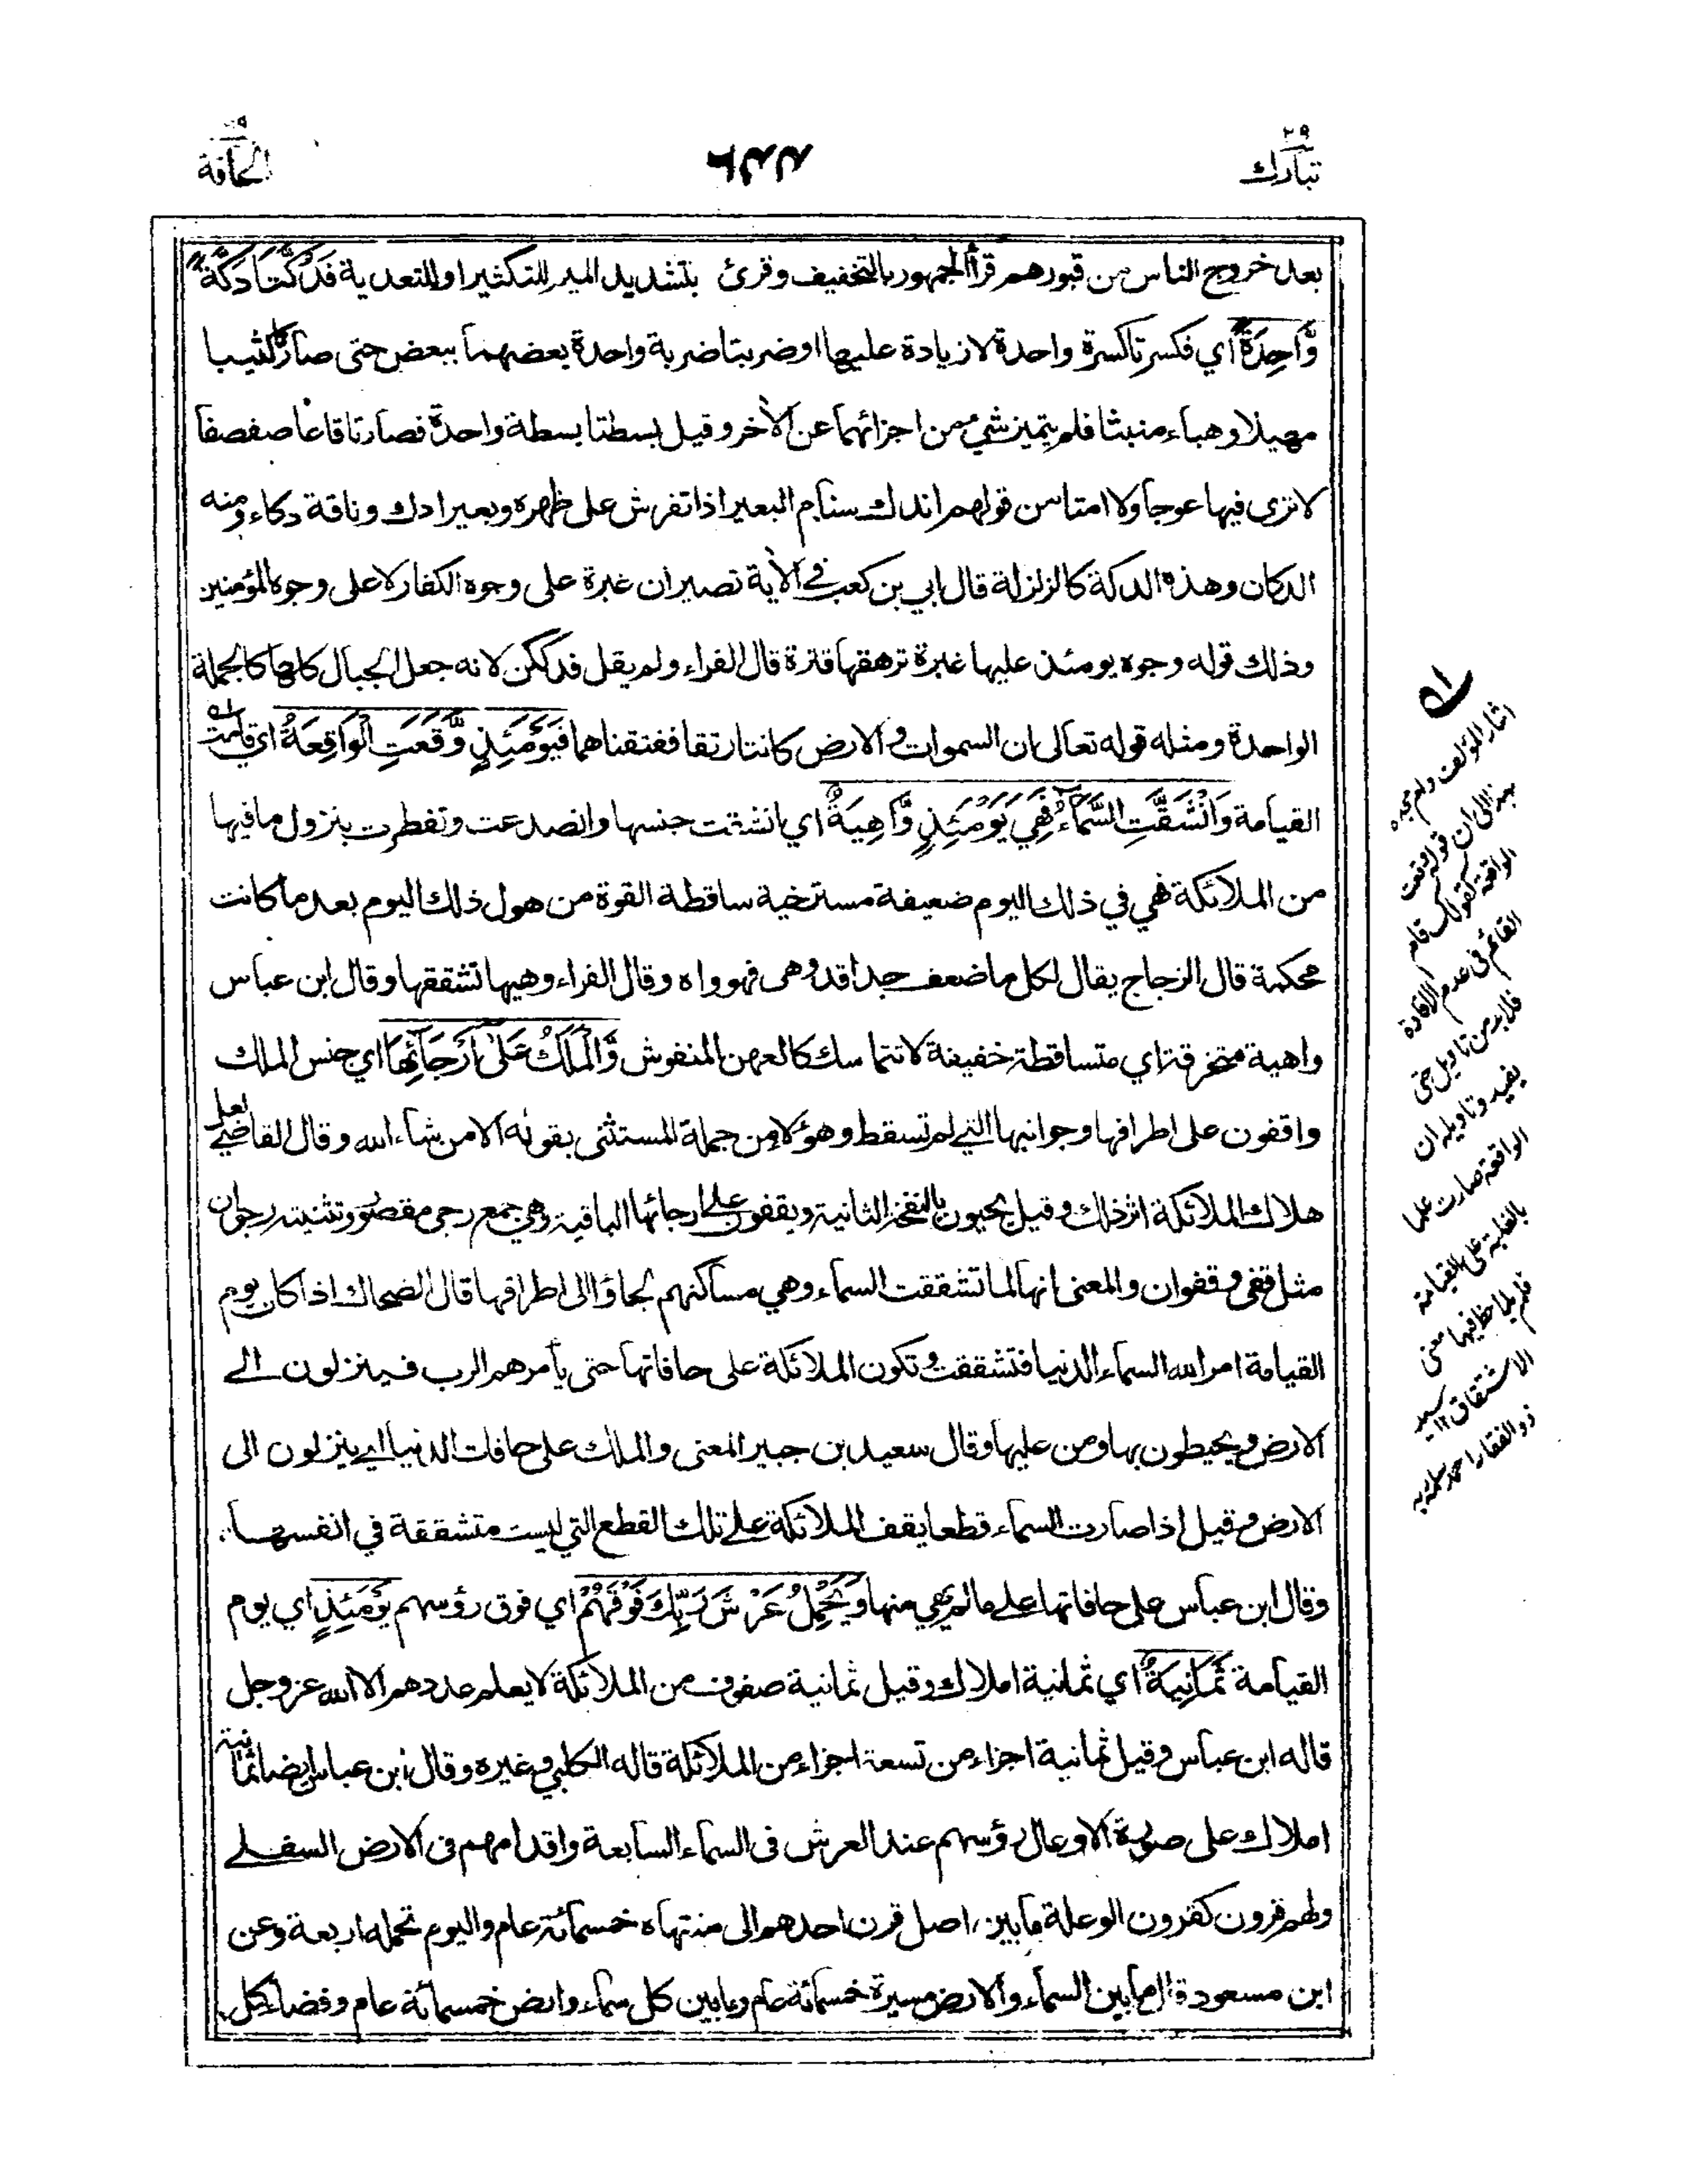 ٢٩
تبارك
الحاقة
بعد خروج الناس من قبورهم قرأ الجمهور بالتخفيف وقرئ بتشديد الميم للتكثير او للتعدية فَدُكَّتَا دَكَّةً
وَّاحِدَةً اي فكسرتا كسرة واحدة لا زيادة عليها او ضربتا ضربة واحدة بعضهما ببعض حتى صارتا كثيبا
مهيلا وهباء منبثا فلم يتميز شيء من اجزائهما عن الآخر وقيل بسطتا بسطة واحدة فصارتا قاعا صفصفا
لا ترى فيها عوجا ولا امتا من قولهم اندك سنام البعير اذا تفرش على ظهره وبعير ادك وناقة دكاء ومنه
الدكان وهذه الدكة كالزلزلة قال ابي بن كعب في الآية تصيران غبرة على وجوه الكفار لا على وجوه المؤمنين
وذلك قوله وجوه يومئذ عليها غبرة ترهقها قترة قال الفراء ولم يقل فدككن لانه جعل الجبال كلها كالجملة
الواحدة ومثله قوله تعالى ان السموات والارض كانتا رتقا ففتقناهما فَيَوْمَئِذٍ وَّقَعَتِ الْوَاقِعَةُ اي قامت
القيامة وَانْشَقَّتِ السَّمَاءُ فَهِيَ يَوْمَئِذٍ وَّاهِيَةٌ اي انشقت جنسها وانصدعت وتفطرت بنزول ما فيها
من الملائكة فهي في ذلك اليوم ضعيفة مسترخية ساقطة القوة من هول ذلك اليوم بعد ما كانت
محكمة قال الزجاج يقال لكل ما ضعف جدا قد وهى فهو واه وقال الفراء وهيها تشققها وقال ابن عباس
واهية متخرقة اي متساقطة خفيفة لا تتماسك كالعهن المنفوش وَّالْمَلَكُ عَلَىٰ اَرْجَائِهَا اي جنس الملك
واقفون على اطرافها وجوانبها التي لم تسقط وهؤلاء من جملة المستثنى بقوله الا من شاء الله وقال القاضي لعل
هلاك الملائكة اثر ذلك وقيل يحيون بالنفخة الثانية ويقفون على ارجائها الباقية وهي جمع رجى مقصور وتثنيته رجوان
مثل قفى وقفوان والمعنى انها لما تشققت السماء وهي مساكنهم لجاؤا الى اطرافها قال الضحاك اذا كان يوم
القيامة امر الله السماء الدنيا فتشققت وتكون الملائكة على حافاتها حتى يأمرهم الرب فينزلون الى
الارض ويحيطون بها ومن عليها وقال سعيد بن جبير المعنى والملك على حافات الدنيا اي ينزلون الى
الارض وقيل اذا صارت السماء قطعا يقف الملائكة على تلك القطع التي ليست متشققة في انفسها
وقال ابن عباس على حافاتها على ما لم يهي منها وَيَحْمِلُ عَرْشَ رَبِّكَ فَوْقَهُمْ اي فوق رؤسهم يَوْمَئِذٍ اي يوم
القيامة ثَمَانِيَةٌ اي ثمانية املاك وقيل ثمانية صفوف من الملائكة لا يعلم عددهم الا الله عز وجل
قاله ابن عباس وقيل ثمانية اجزاء من تسعة اجزاء من الملائكة قاله الكلبي وغيره وقال ابن عباس ايضا ثمانية
املاك على صورة الاوعال رؤسهم عند العرش فى السماء السابعة واقدامهم فى الارض السفلى
ولهم قرون كقرون الوعلة ما بين اصل قرن احدهم الى منتهاه خمسمائة عام واليوم تحمله اربعة وعن
ابن مسعود قال ما بين السماء والارض مسيرة خمسمائة عام وما بين كل سماء وارض خمسمائة عام وفضاء كل
اشار المؤلف
بهذا الى ان قوله وقعت
الواقعة كقولك قام
القائم فى عدم الافادة
فلابد من تاويل حتى
يفيد وتاويله ان
الواقعة صارت علما
بالغلبة على القيامة
فلم يلاحظ فيها معنى
الاشتقاق ١٢ سيد
ذو الفقار احمد سلمه ربه